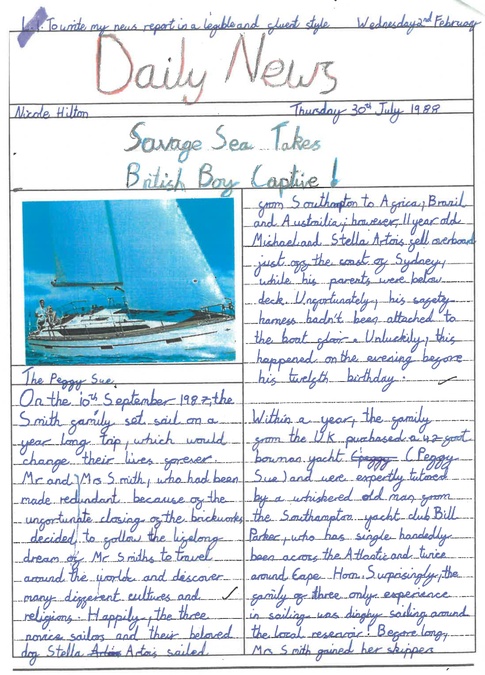 L.I. To write my news report in a legible and fluent style Wednesday 2nd February
Daily News
Nicole Hilton Thursday 30th July 1988
Savage Sea Takes
British Boy Captive!
The Peggy Sue.
On the 10th September 1987, the
Smith family set sail on a
year long trip, which would
change their lives forever.
Mr and Mrs Smith, who had been
made redundant because of the
unfortunate closing of the brickworks
decided to follow the lifelong
dream of Mr Smiths to travel
around the world and discover
many different cultures and
religions. Happily, the three
novice sailors and their beloved
dog Stella Artois Artois sailed
from Southampton to Africa, Brazil
and Austrailia; however, 11 year old
Michael and Stella Artois fell overboard
just off the coast of Sydney,
while his parents were below
deck. Unfortunately, his safety
harness hadn't been attached to
the boat floor. Unluckily, this
happened on the evening before
his twelfth birthday.
Within a year, the family
from the U.K purchased a 42 foot
bowman yacht (Peggy
Sue) and were expertly tutored
by a whiskered old man from
the Southampton yacht club Bill
Parker, who has single handedly
been across the Atlantic and twice
around Cape Horn. Surprisingly, the
family of three only experience
in sailing was dinghy sailing around
the local reservoir! Before long,
Mrs Smith gained her skippers